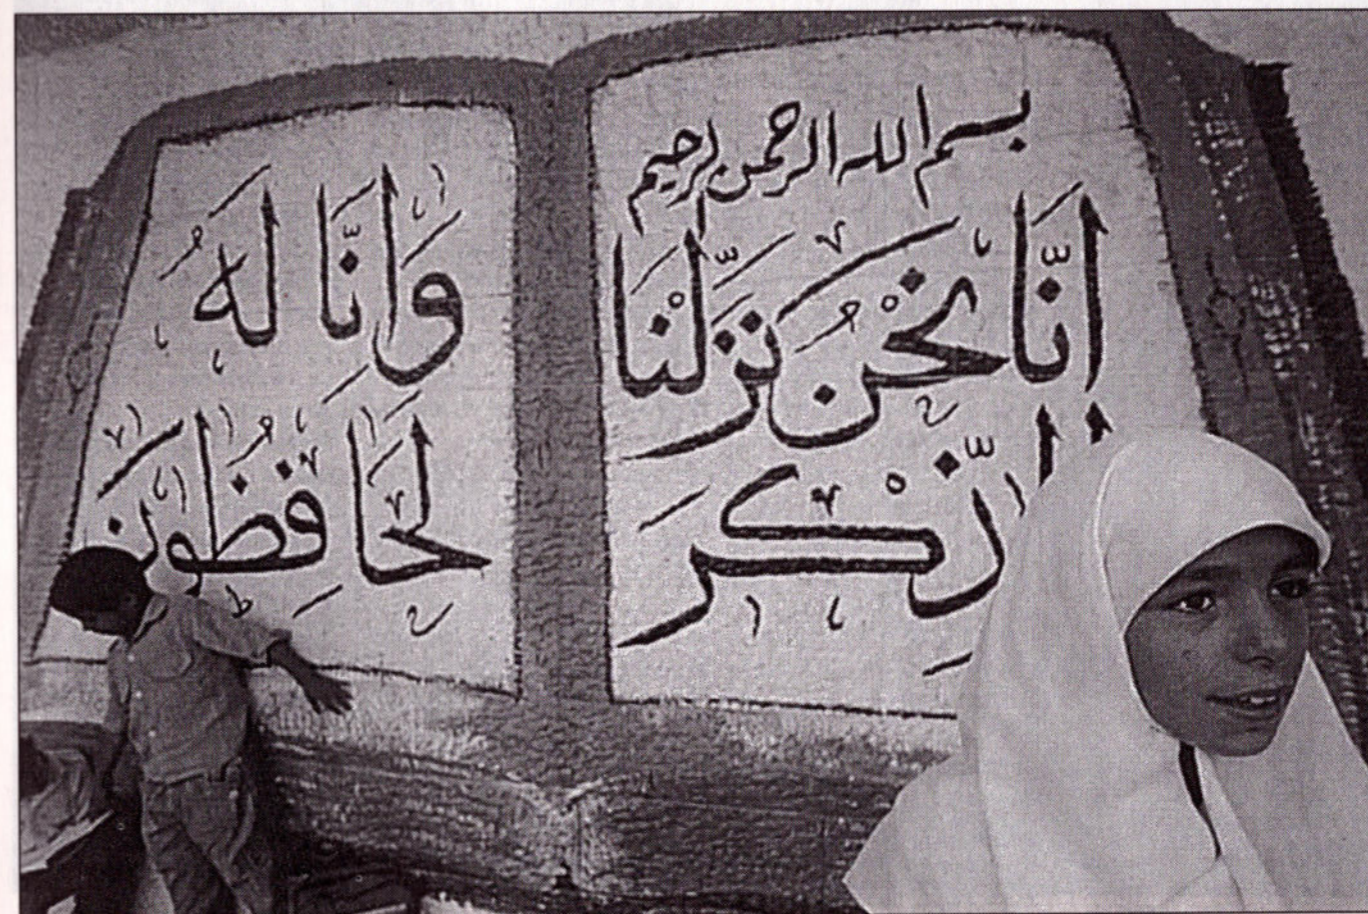 بسم الله الرحمن الرحيم
انَّا نَحْنُ نَزَّلْنَا
الذِّكْرَ
وَانَّا لَهُ
لَحَافِظُونَ